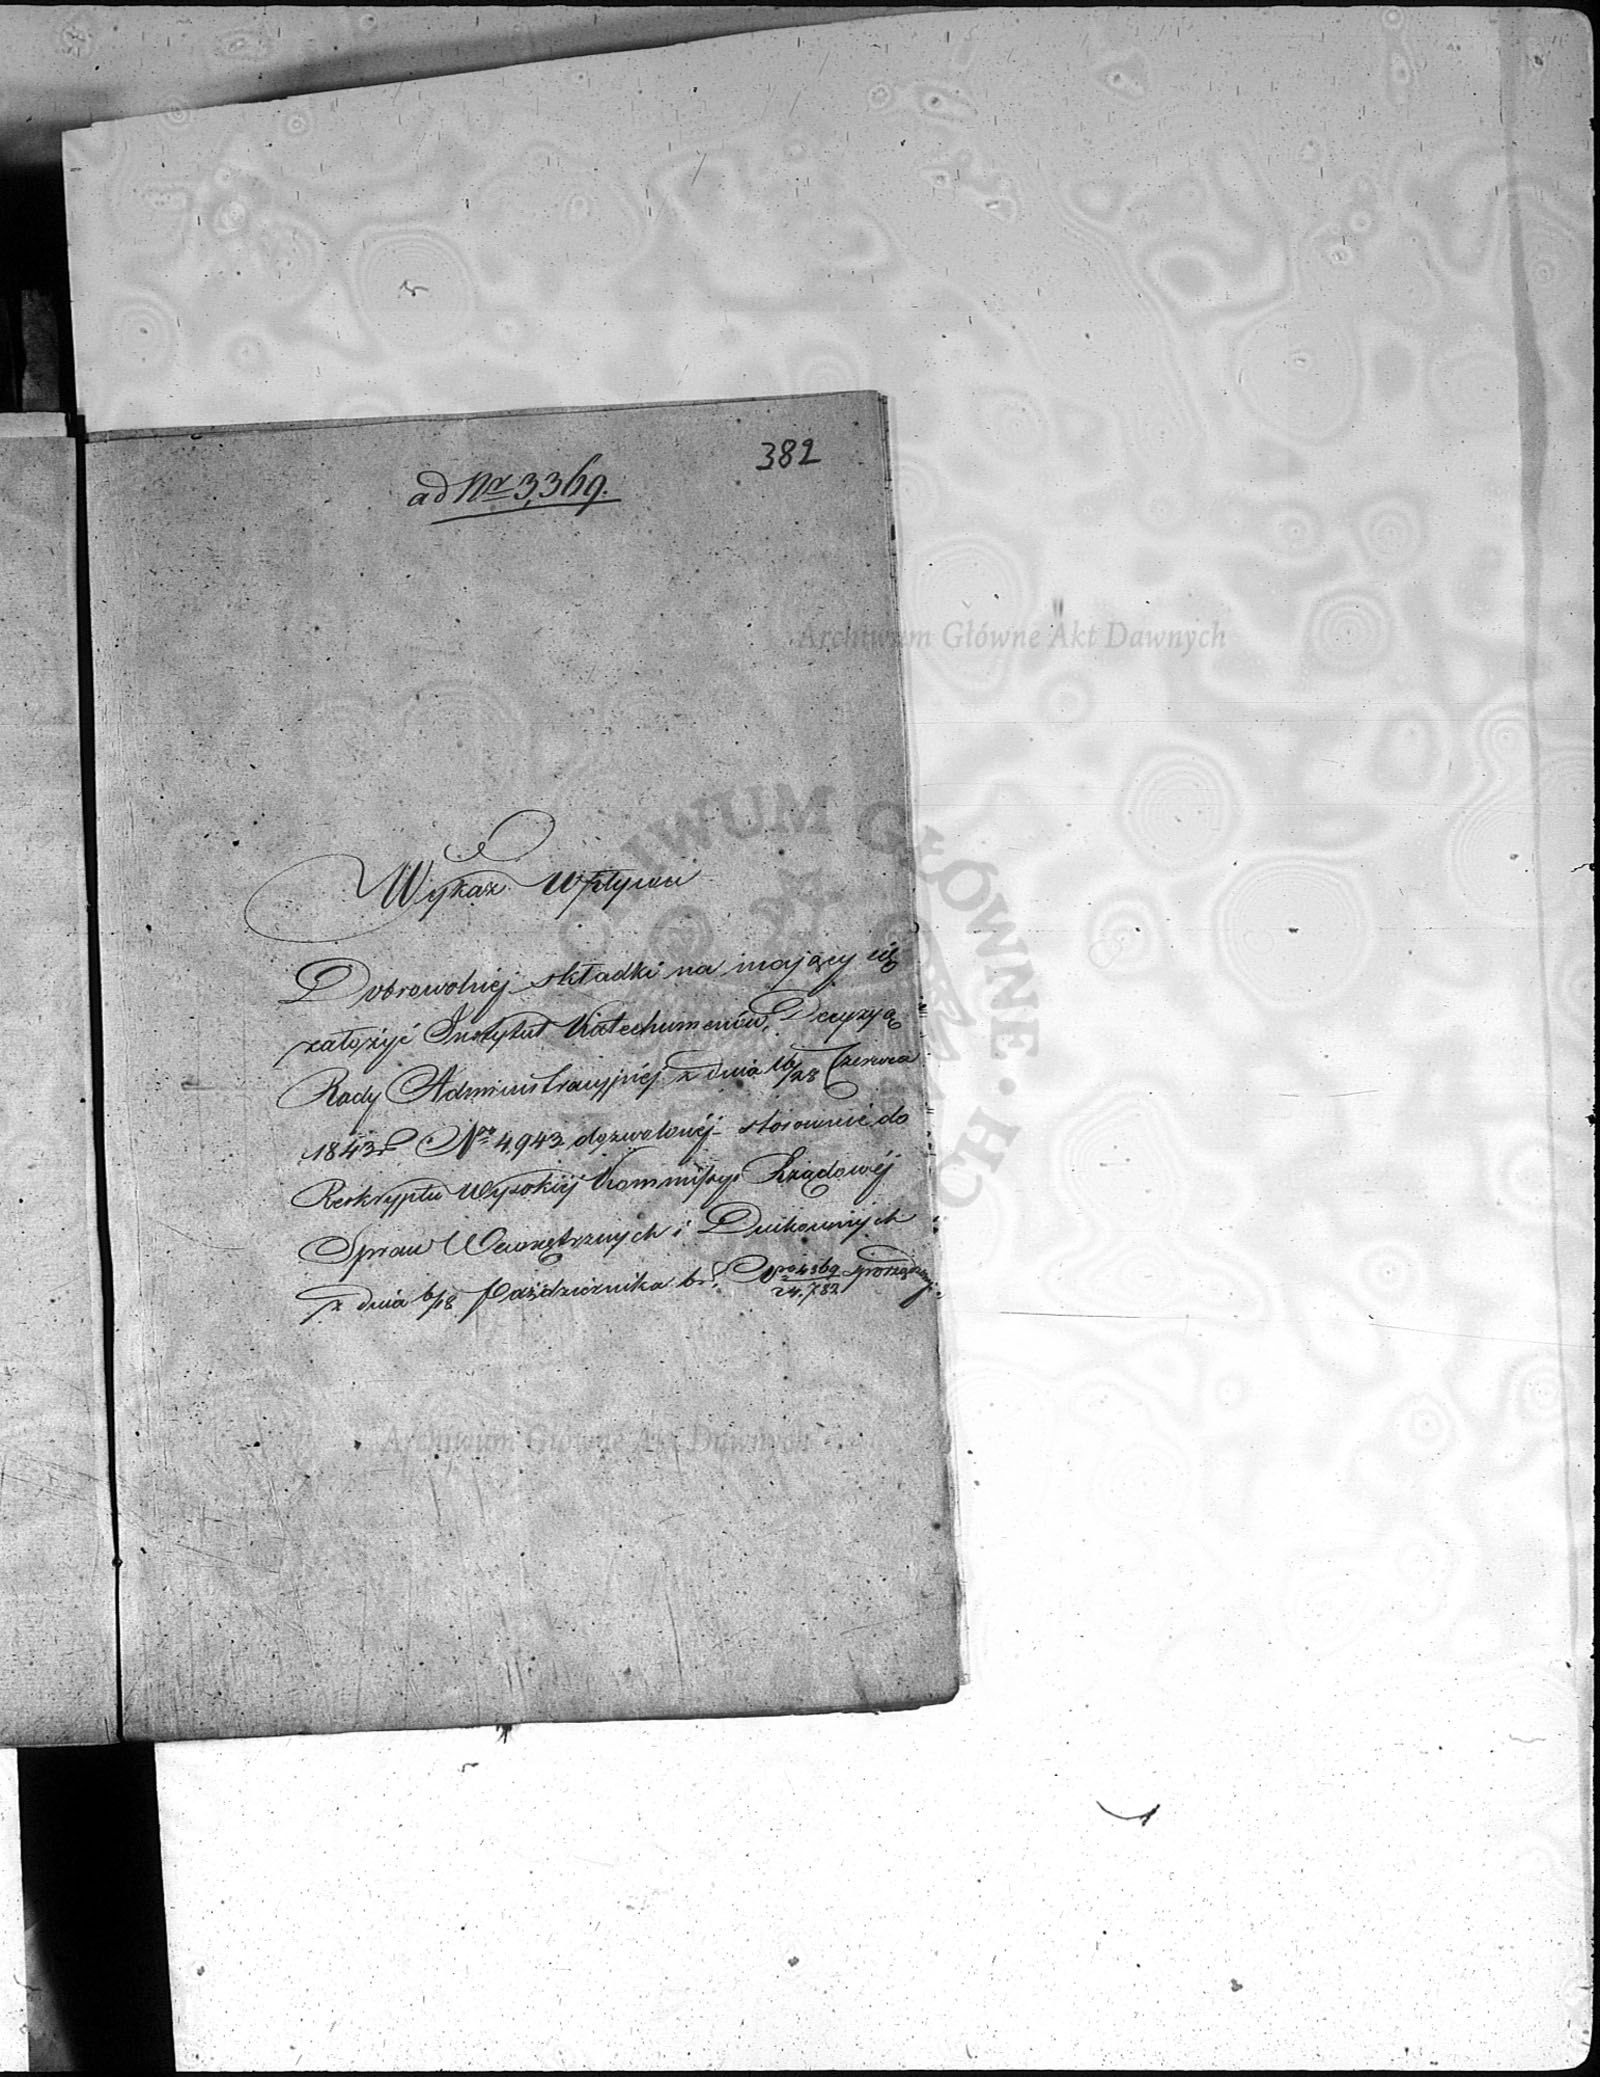 382
ad Nr 3,369.
Wykaz Wpływu
Dobrowolnéj składki na mający się
założyć Instytut Katechumenów, Decyzyą
Rady Administracyjnéj z dnia 16/28 Czerwca
1843 r. Nro 4,943 dozwolonéj - stosownie do
Reskryptu Wysokiéj Kommissyi Rządowéj
Spraw Wewnętrznych i Duchownych
z dnia 6/18 Października b. r. Nro 4369/24,782 sporządzony
Archiwum Główne Akt Dawnych
ARCHIWUM GŁÓWNE AKT DAWNYCH
Archiwum Główne Akt Dawnych